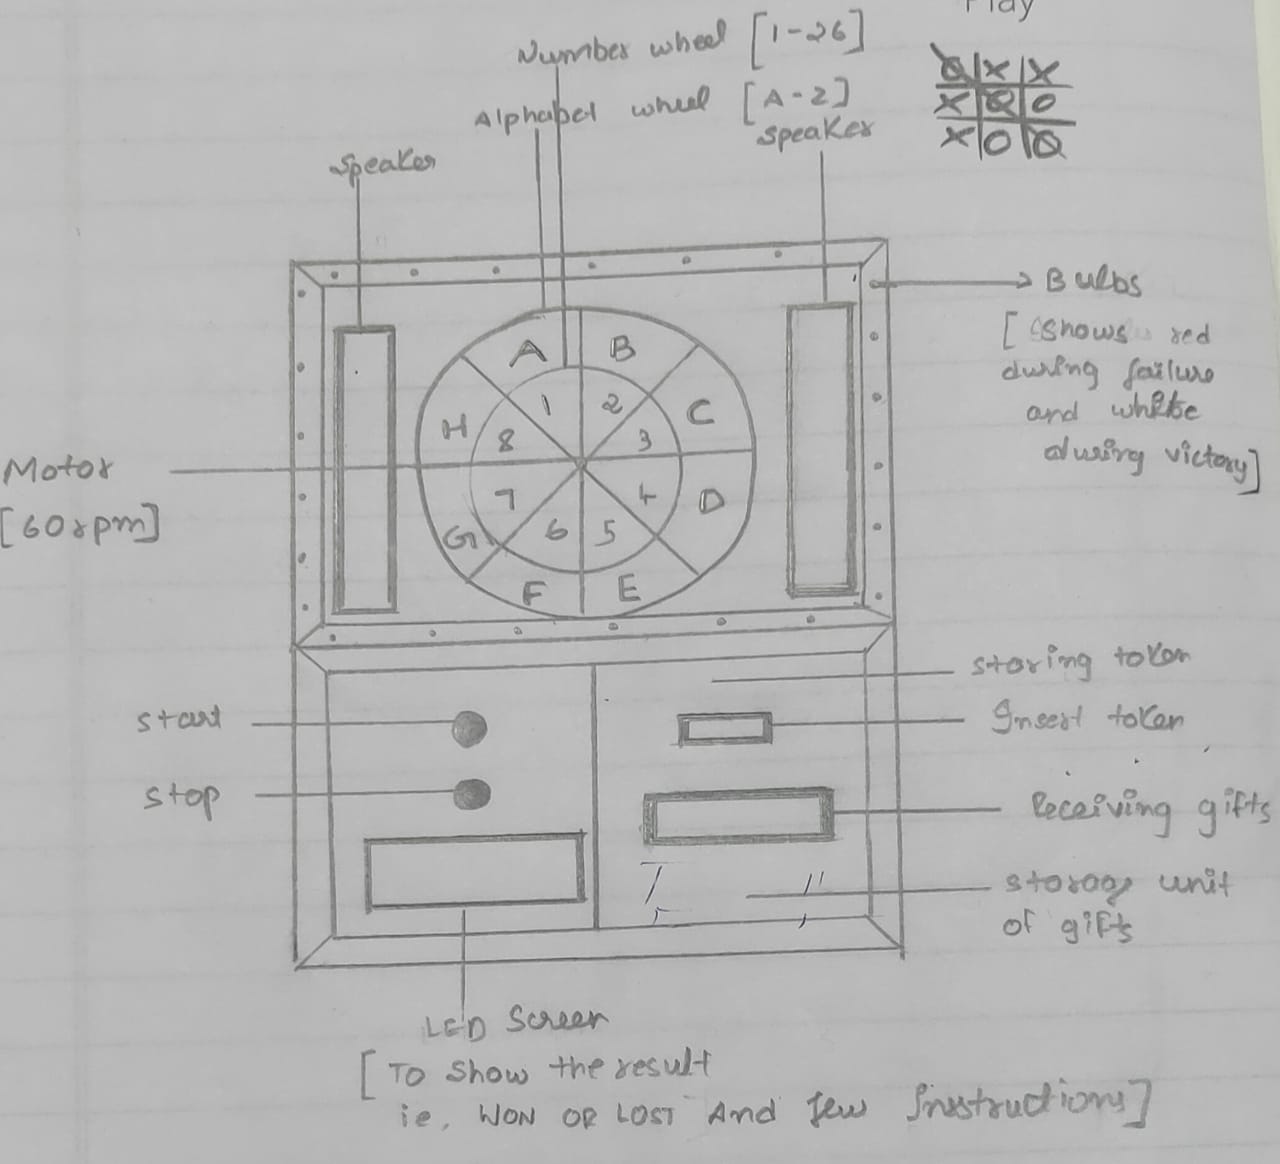 Play
Number wheel [1-26]
Alphabet wheel [A-Z]
Speaker
Speaker
O X X
X O O
X O O
Bulbs
[shows red
during failure
and white
during victory]
A B
H C
1 2
8 3
7 4
6 5
G D
F E
Motor
[60rpm]
storing token
start
Insert token
stop
Receiving gifts
storage unit
of gifts
LED Screen
[To show the result
ie, WON OR LOST And few Instructions]